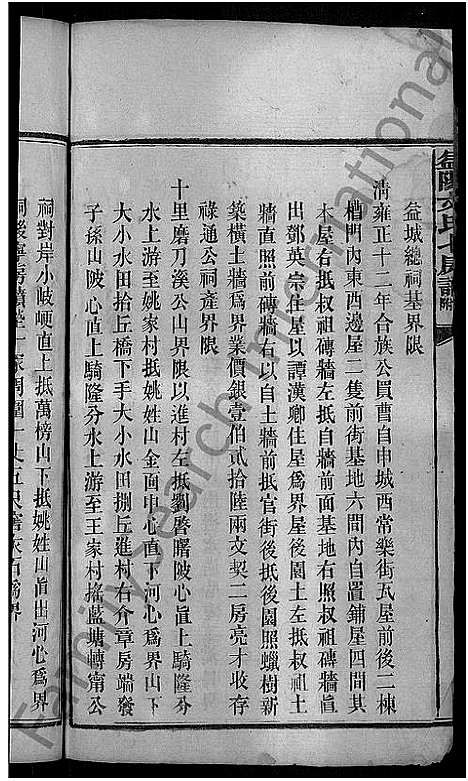 益城總祠基界限
清雍正十二年合族公買曹自申城西常樂街瓦屋前後二棟
槽門內東西邊屋二隻前街基地六間內自置鋪屋四間其
木屋右抵叔祖磚牆左抵自牆前面基地右照叔祖磚牆眞
出鄧英宗住屋以譚漢卿住屋爲界屋後園土左抵叔祖土
牆直照前磚牆右以自土牆前抵官街後抵後園照蠟樹新
築橫土牆爲界業價銀壹伯貳拾陸兩文契二房亮才收存
祿通公祠產界限
十里磨刀溪公山界限以進村左抵劉啓曙陂心眞上騎隆分
水上游至姚家村抵姚姓山金面中心直下河心爲界山下
大小水田拾丘橋下手大小水田捌丘進村右介章房端發
子孫山陂心直上騎隆分水上游至王家村搖藍塘轉甯公
祠對岸小陂峺直上抵萬傍山下抵姚姓山眞出河心爲界
祠後寧房墳塋一冢周圍一丈五尺窖灰石爲界
FamilySearch International